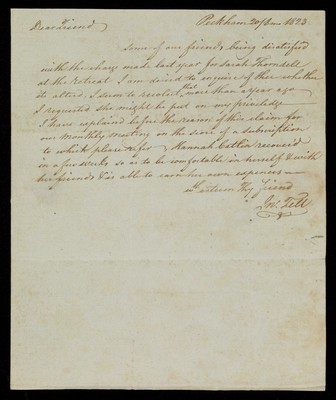 Dear Friend Peckham 20/8mo 1823
Some of our friends being disatisfied
with the charge made last qr for Sarah Thorndell
at the retreat. I am desired to enquire of thee whether
its altered. I seem to recolect that more than a year ago
I requested she might be put on my priviledge
I have explained before the reason of this claim for
our monthly meeting in the score of a subscription
to which please refer Hannah Catlin recover'd
in a few weeks so as to be comfortable in herself & with
her friends & is able to earn her own expences
in esteem Thy friend
Jno. Fell